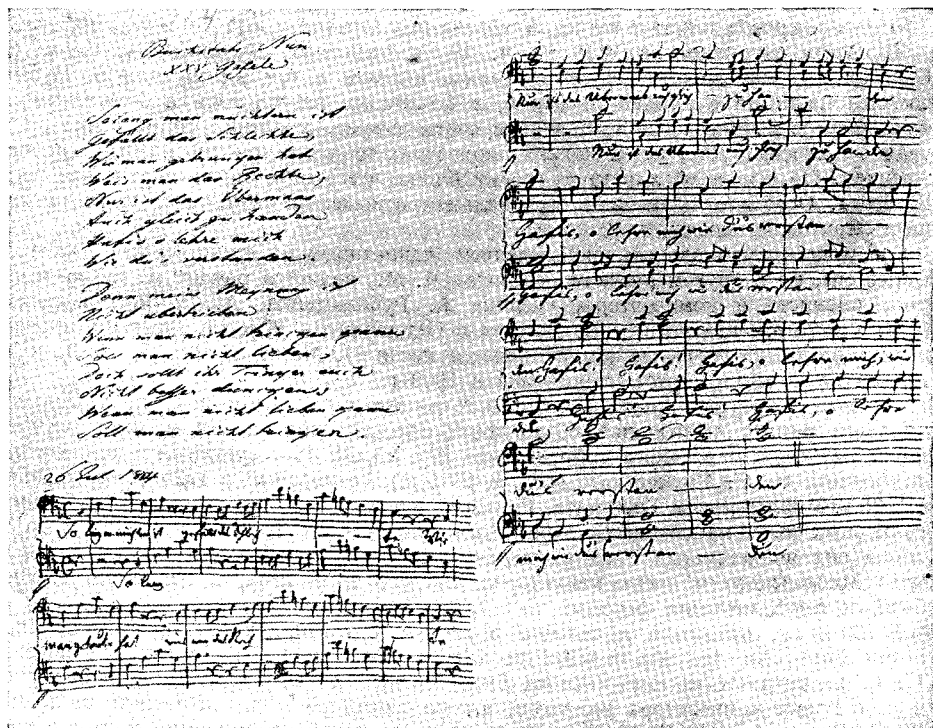 Buchstabe Nun
XXV Gasele
Solang man nüchtern ist
Gefällt das Schlechte,
Wie man getrunken hat
Weis man das Rechte,
Nur ist das Übermaas
Auch gleich zu handen
Hafis o lehre mich
Wie du's verstanden.
Denn meine Meynung ist
Nicht übertrieben
Wenn man nicht trinken
Soll man nicht lieben,
Doch sollt ihr Trinker euch
Nicht besser dünken,
Wenn man nicht lieben
Soll man nicht trinken.
26 Jul. 1814
So lang
man
Nur ist das Übermaas auch gleich zu han — den
Nur ist das Übermaas auch gleich zu handen
Hafis, o lehre mich wie du's verstan —
Hafis, o lehre mich wie du's verstan —
den Hafis! Hafis! Hafis, o lehre mich, wie
den Hafis! Hafis! Hafis, o lehre
du's verstan — den
mich wie du's verstan — den